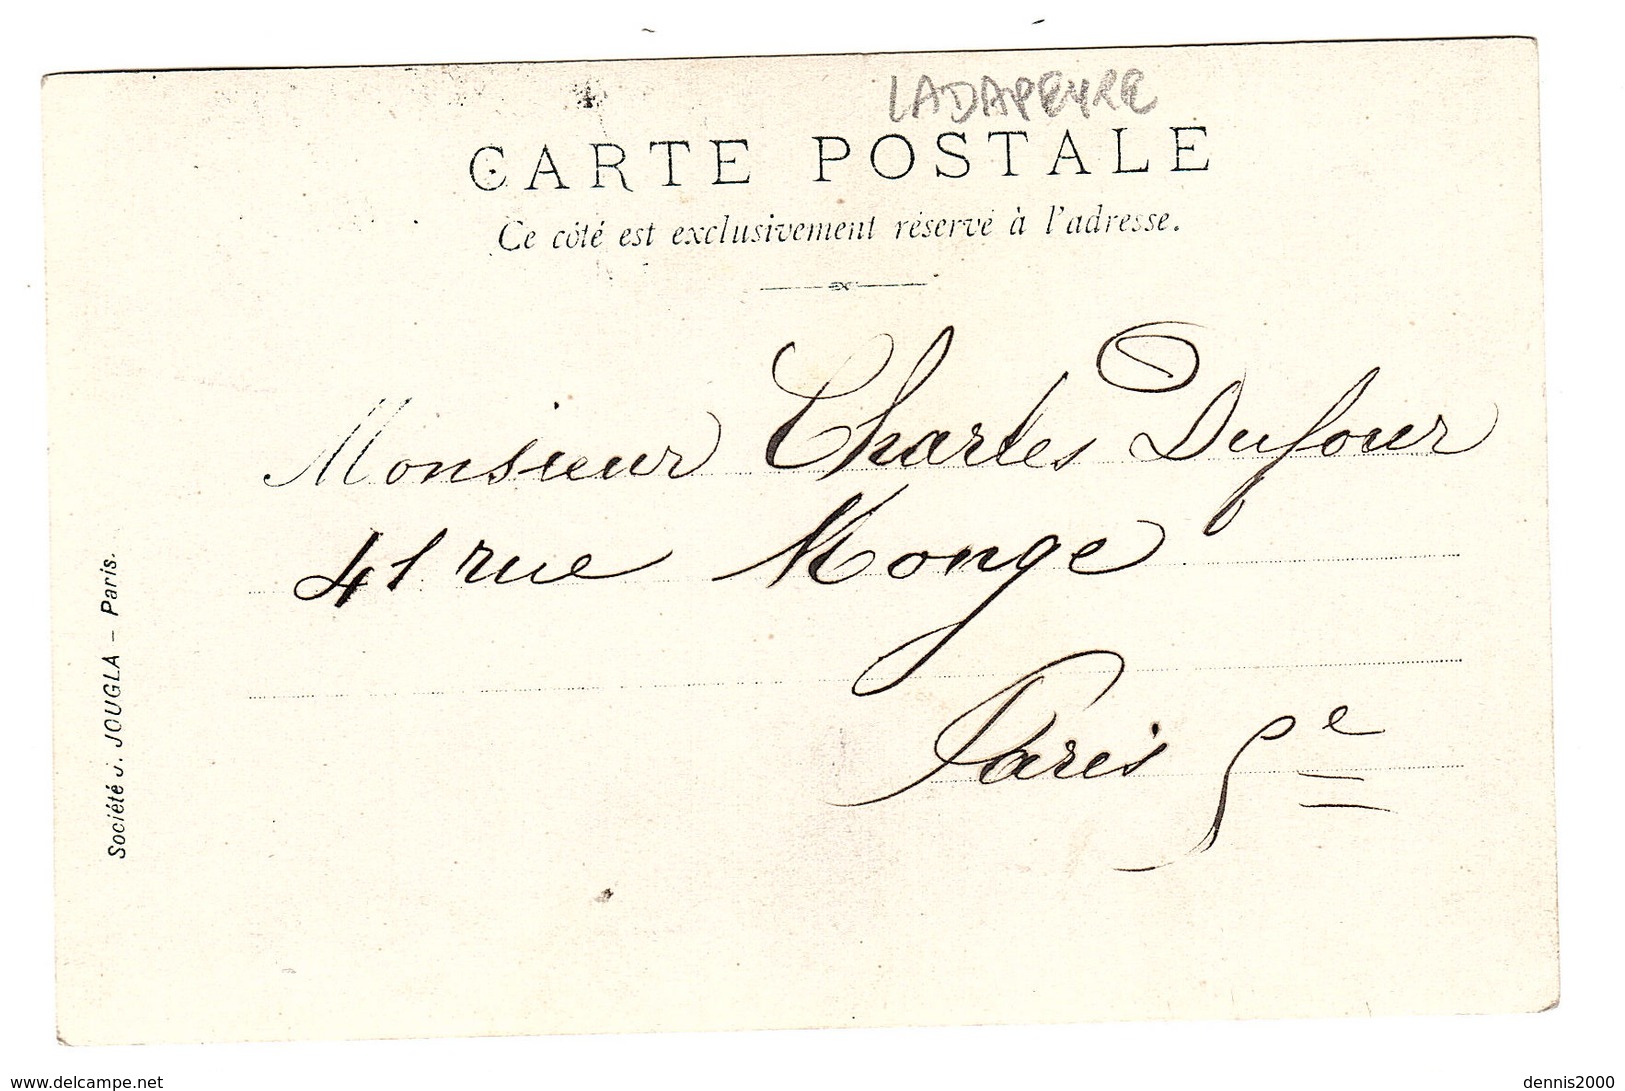 LADAPEYRE
CARTE POSTALE
Ce côté est exclusivement réservé à l'adresse.
Monsieur Charles Dufour
41 rue Monge
Paris 5e
Société J. JOUGLA – Paris.
www.delcampe.net
dennis2000